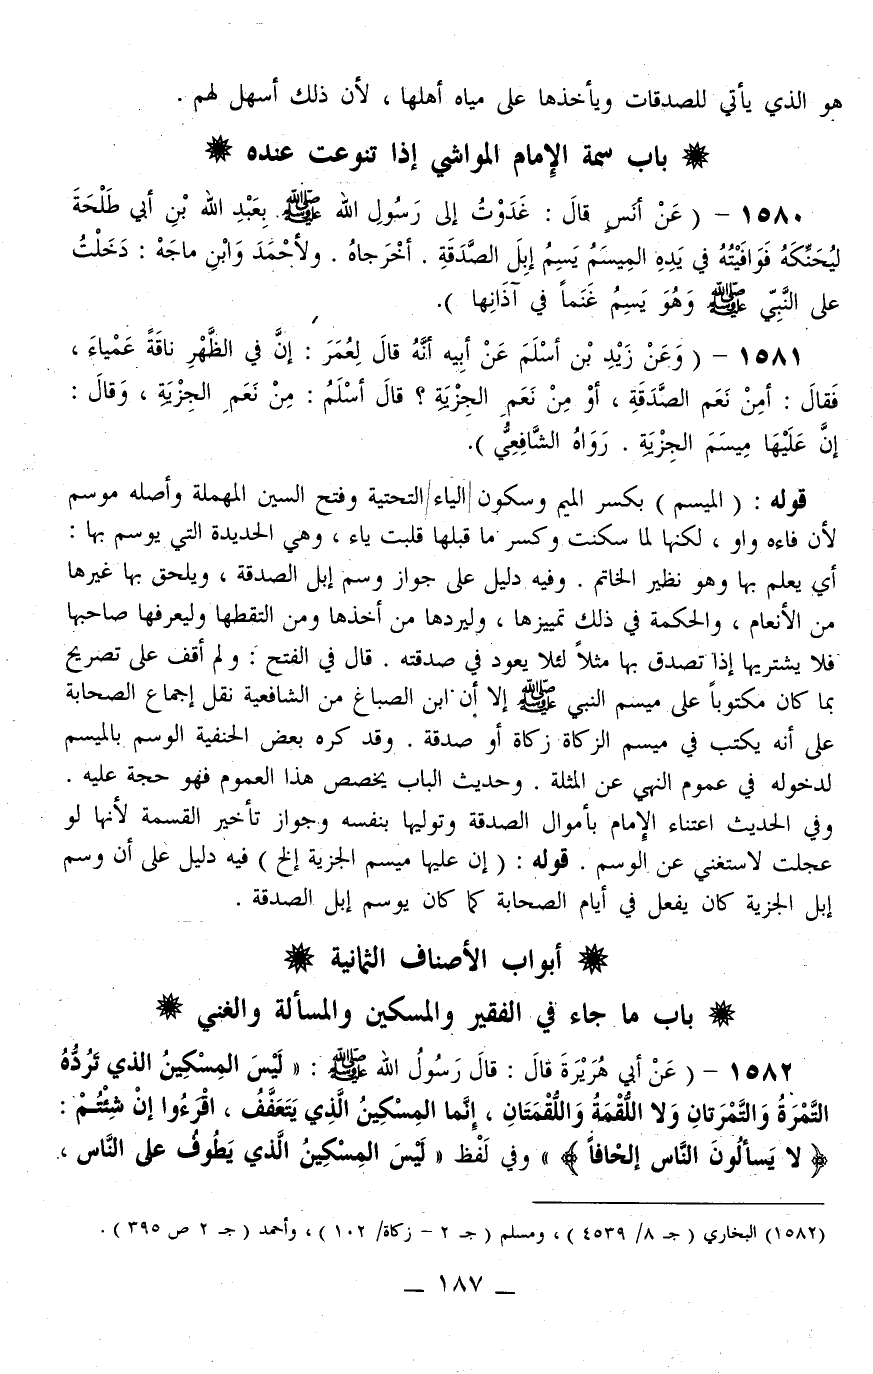 هو الذي يأتي للصدقات ويأخذها على مياه أهلها ، لأن ذلك أسهل لهم .
باب سمة الإمام المواشي إذا تنوعت عنده
١٥٨٠ – ( عَنْ أَنَسٍ قالَ : غَدَوْتُ إلى رَسُولِ الله ﷺ بِعَبْدِ الله بْنِ أبي طَلْحَةَ
ليُحَنِّكَهُ فَوَافَيْتُهُ في يَدِهِ المِيسَمُ يَسِمُ إبِلَ الصَّدَقَةِ . أخْرَجاهُ . ولأحْمَدَ وَابْنِ ماجَهْ : دَخَلْتُ
على النَّبِيّ ﷺ وَهُوَ يَسِمُ غَنَماً في آذَانِها ).
١٥٨١ – ( وَعَنْ زَيْدِ بْنِ أسْلَمَ عَنْ أبِيه أنَّهُ قالَ لِعُمَرَ : إنَّ في الظَّهْرِ ناقَةً عَمْياءَ ،
فَقالَ : أمِنْ نَعَم الصَّدَقَةِ ، أوْ مِنْ نَعَمِ الجِزْيَةِ ؟ قالَ أسْلَمُ : مِنْ نَعَمِ الجِزْيَةِ ، وَقالَ :
إنَّ عَلَيْها مِيسَمَ الجِزْيَةِ . رَوَاهُ الشَّافِعِيُّ ).
قوله : ( الميسم ) بكسر الميم وسكون الياء التحتية وفتح السين المهملة وأصله موسم
لأن فاءه واو ، لكنها لما سكنت وكسر ما قبلها قلبت ياء ، وهي الحديدة التي يوسم بها :
أي يعلم بها وهو نظير الخاتم . وفيه دليل على جواز وسم إبل الصدقة ، ويلحق بها غيرها
من الأنعام ، والحكمة في ذلك تمييزها ، وليردها من أخذها ومن التقطها وليعرفها صاحبها
فلا يشتريها إذا تصدق بها مثلاً لئلا يعود في صدقته . قال في الفتح : ولم أقف على تصريح
بما كان مكتوباً على ميسم النبي ﷺ إلا أن ابن الصباغ من الشافعية نقل إجماع الصحابة
على أنه يكتب في ميسم الزكاة زكاة أو صدقة . وقد كره بعض الحنفية الوسم بالميسم
لدخوله في عموم النهي عن المثلة . وحديث الباب يخصص هذا العموم فهو حجة عليه .
وفي الحديث اعتناء الإمام بأموال الصدقة وتوليها بنفسه وجواز تأخير القسمة لأنها لو
عجلت لاستغني عن الوسم . قوله : ( إن عليها ميسم الجزية إلخ ) فيه دليل على أن وسم
إبل الجزية كان يفعل في أيام الصحابة كما كان يوسم إبل الصدقة .
أبواب الأصناف الثمانية
باب ما جاء في الفقير والمسكين والمسألة والغني
١٥٨٢ – ( عَنْ أبي هُرَيْرَةَ قالَ : قالَ رَسُولُ الله ﷺ : « لَيْسَ المِسْكِينُ الذي تَرُدُّهُ
التَّمْرَةُ وَالتَّمْرَتانِ وَلا اللُّقْمَةُ وَاللُّقْمَتَانِ ، إنَّما المِسْكِينُ الَّذِي يَتَعَفَّفُ ، اقْرَءُوا إنْ شِئْتُمْ :
﴿ لا يَسألُونَ النَّاس إلحْافاً ﴾ » وفي لَفْظ « لَيْسَ المِسْكِينُ الَّذي يَطُوفُ على النَّاس ،
(١٥٨٢) البخاري ( جـ ٨/ ٤٥٣٩ ) ، ومسلم ( جـ ٢ – زكاة/ ١٠٢ ) ، وأحمد ( جـ ٢ ص ٣٩٥ ) .
– ١٨٧ –